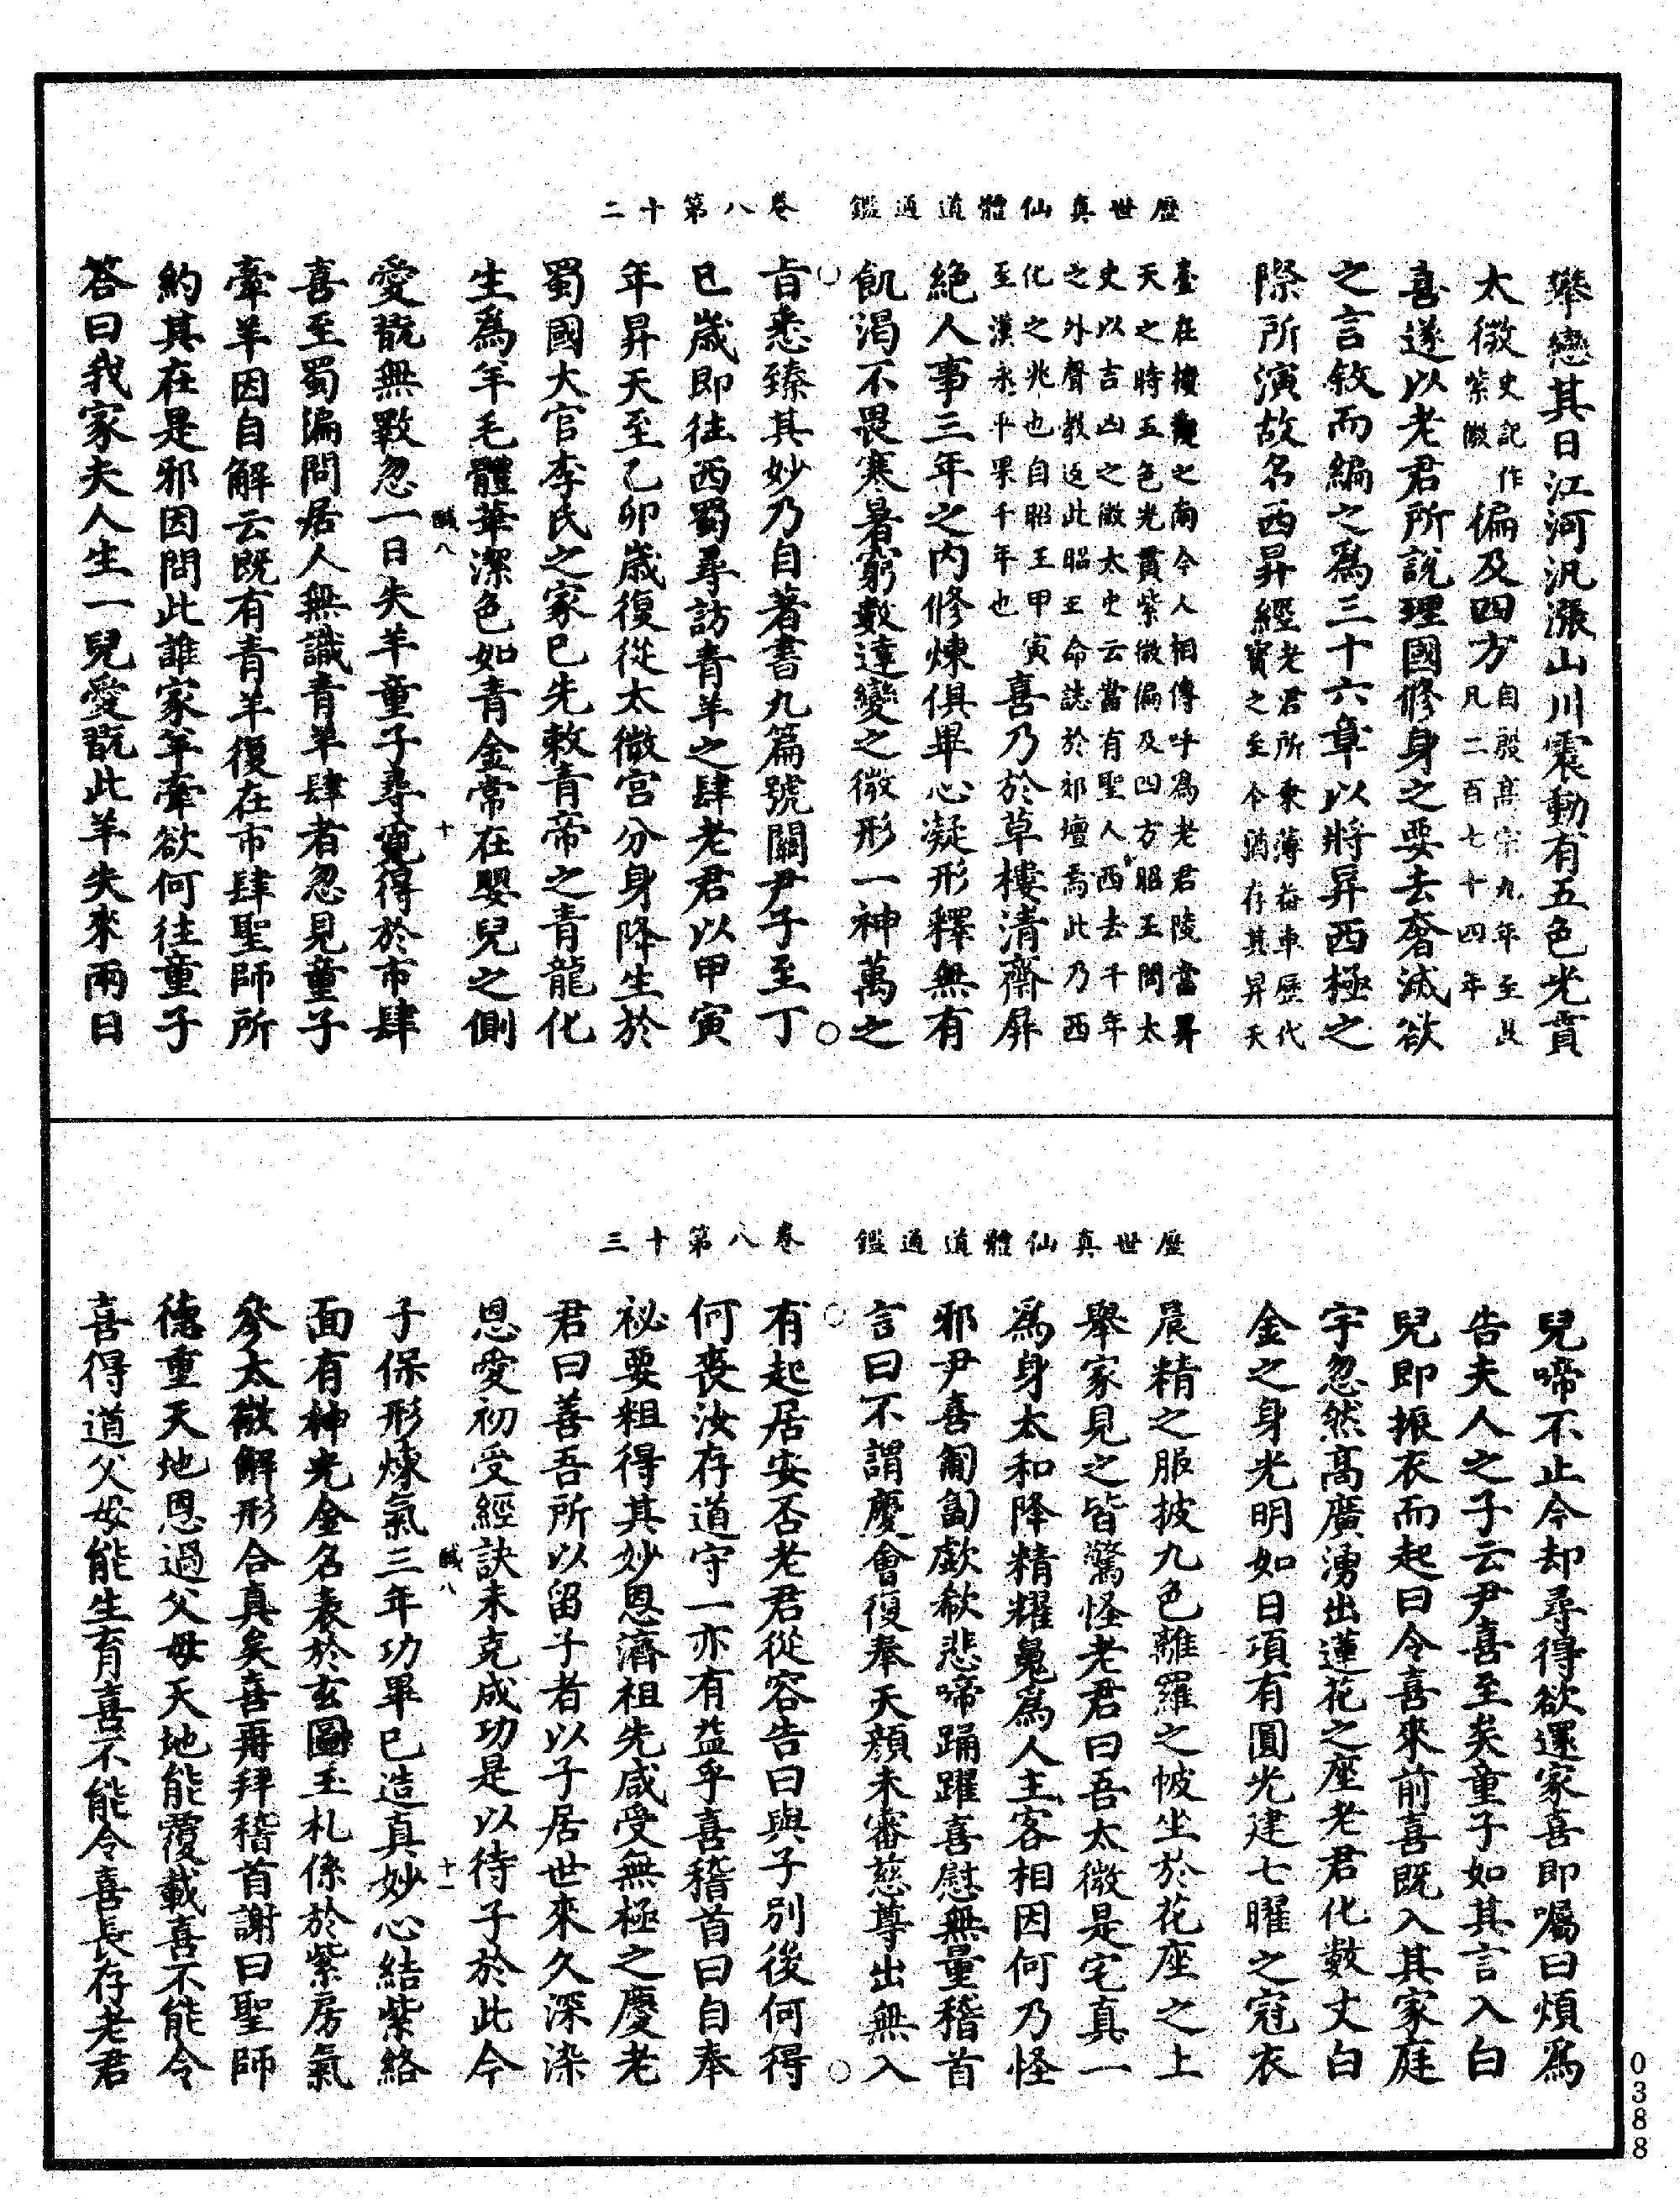 歷世真仙體道通鑑　卷八第十二
攀戀其日江河汎漲山川震動有五色光貫
太微史記作紫微徧及四方自殷高宗九年至此凡二百七十四年
喜遂以老君所說理國修身之要去奢滅欲
之言敘而編之爲三十六章以將昇西極之
際所演故名西昇經老君所乘薄畚車歷代寶之至今猶存其昇天
臺在樓觀之南今人相傳呼爲老君陵當昇天之時五色光貫紫微徧及四方昭王問太
史以吉凶之徵太史云當有聖人西去千年之外聲教返此昭王命誌於郊壇焉此乃西
化之兆也自昭王甲寅至漢永平果千年也喜乃於草樓清齋屏
絕人事三年之內修煉俱畢心凝形釋無有
飢渴不畏寒暑窮數達變之微形一神萬之
旨悉臻其妙乃自著書九篇號關尹子至丁
巳歲即往西蜀尋訪青羊之肆老君以甲寅
年昇天至乙卯歲復從太微宮分身降生於
蜀國大官李氏之家已先敕青帝之青龍化
生爲羊毛體華潔色如青金常在嬰兒之側
愛翫無斁忽一日失羊童子尋覓得於市肆
喜至蜀徧問居人無識青羊肆者忽見童子
牽羊因自解云既有青羊復在市肆聖師所
約其在是邪因問此誰家羊牽欲何往童子
答曰我家夫人生一兒愛翫此羊失來兩日
鹹八　十
歷世真仙體道通鑑　卷八第十三
兒啼不止今却尋得欲還家喜即囑曰煩爲
告夫人之子云尹喜至矣童子如其言入白
兒即振衣而起曰令喜來前喜既入其家庭
宇忽然高廣湧出蓮花之座老君化數丈白
金之身光明如日項有圓光建七曜之冠衣
晨精之服披九色離羅之帔坐於花座之上
舉家見之皆驚怪老君曰吾太微是宅真一
爲身太和降精耀魄爲人主客相因何乃怪
邪尹喜匍匐歔欷悲啼踊躍喜慰無量稽首
言曰不謂慶會復奉天顏未審慈尊出無入
有起居安否老君從容告曰與子別後何得
何喪汝存道守一亦有益乎喜稽首曰自奉
祕要粗得其妙恩濟祖先咸受無極之慶老
君曰善吾所以留子者以子居世來久深染
恩愛初受經訣未克成功是以待子於此今
子保形煉氣三年功畢已造真妙心結紫絡
面有神光金名表於玄圖玉札係於紫房氣
參太微解形合真矣喜再拜稽首謝曰聖師
德重天地恩過父母天地能覆載喜不能令
喜得道父母能生育喜不能令喜長存老君
鹹八　十一
0388